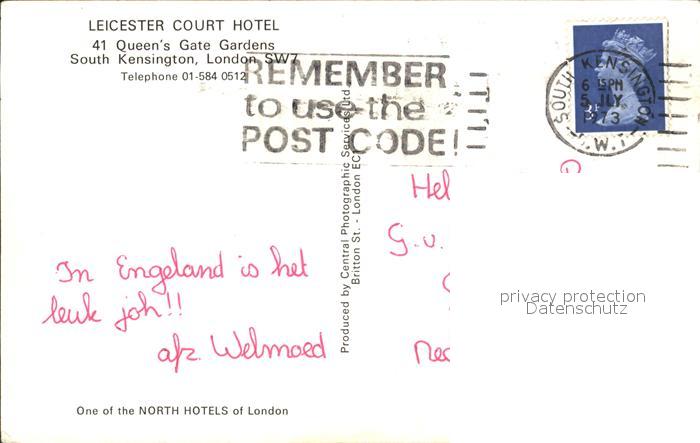 LEICESTER COURT HOTEL
41 Queen's Gate Gardens
South Kensington, London, SW7
Telephone 01-584 0512
REMEMBER
to use the
POST CODE!
SOUTH KENSINGTON
6 15PM
5 JLY
1973
S.W.7.
Produced by Central Photographic Services Ltd
Britton St. - London EC1
In Engeland is het
leuk joh!!
afz. Welmoed
Hel
G.v.
Nec
privacy protection
Datenschutz
One of the NORTH HOTELS of London